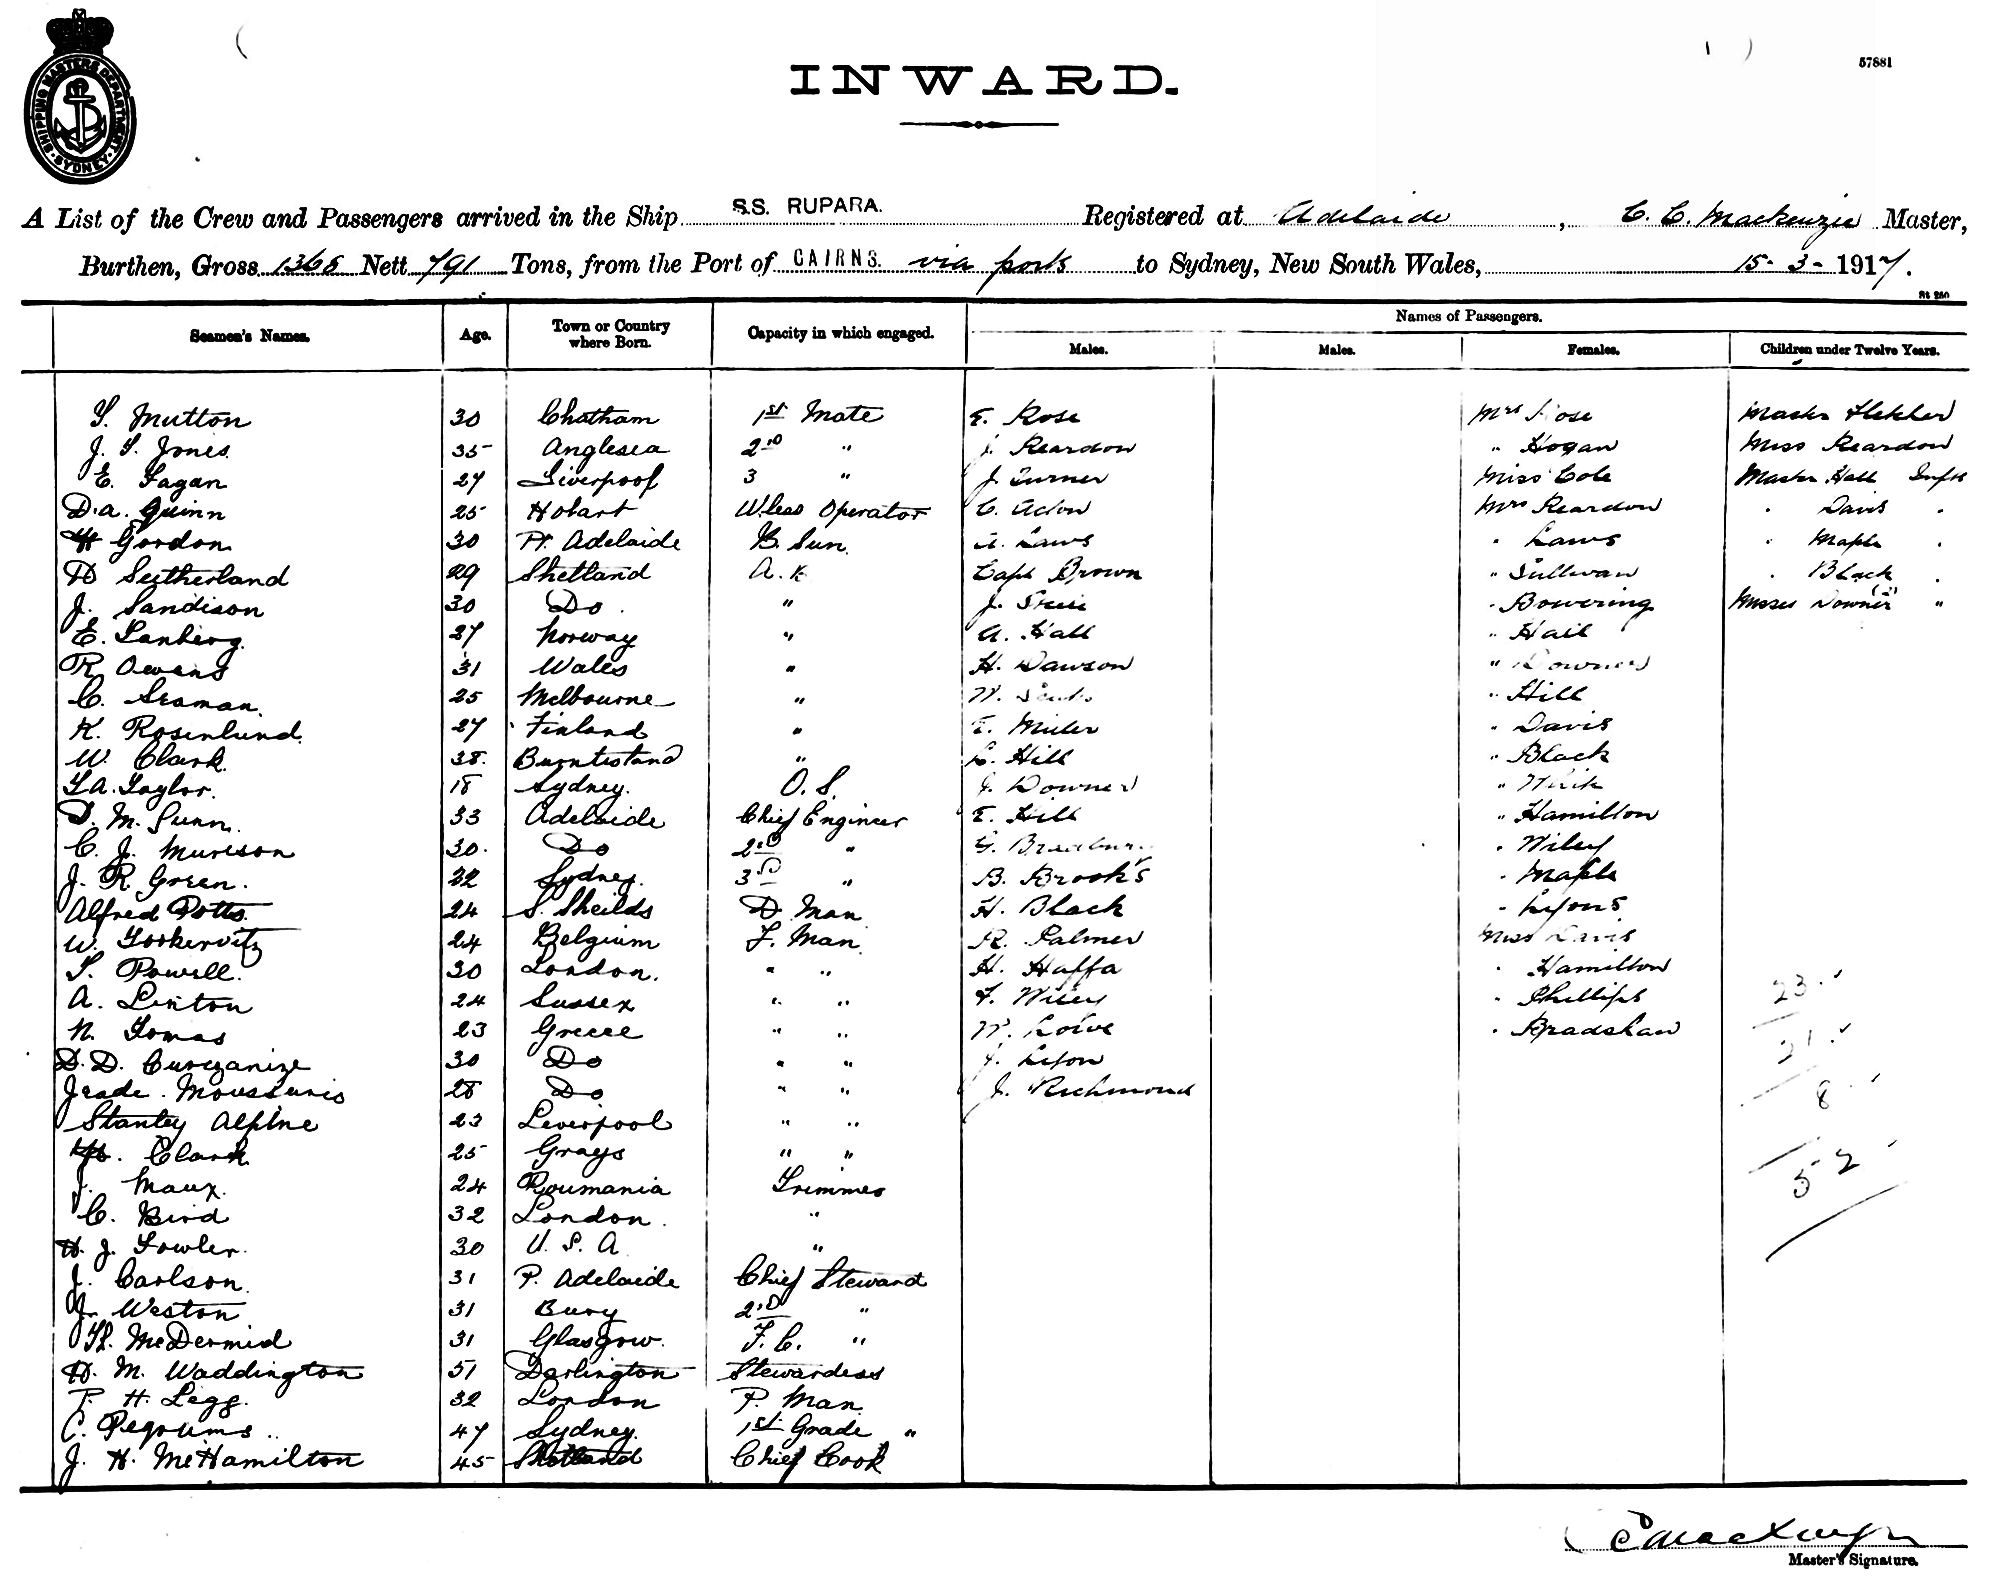 SHIPPING MASTERS DEPARTMENT
SYDNEY
INWARD.
57881
A List of the Crew and Passengers arrived in the Ship S.S. RUPARA. Registered at Adelaide, C. C. Mackenzie Master,
Burthen, Gross 1365 Nett 791 Tons, from the Port of CAIRNS. via ports to Sydney, New South Wales, 15-3-1917.
Names of Passengers.
Seamen's Names. Age. Town or Country where Born. Capacity in which engaged. Males. Males. Females. Children under Twelve Years.
S. Mutton 30 Chatham 1st Mate E. Rose Mrs Rose Master
J. S. Jones 35 Anglesea 2nd " J. Reardon " Hogan Miss Reardon
E. Fagan 27 Liverpool 3 " J. Turner Miss Cole Master Hall Infts
D.A. Quinn 25 Hobart W.less Operator C. Mrs Reardon " Davis "
H Gordon 30 Pt. Adelaide A. Laws " Laws " Maple "
D Sutherland 29 Shetland A. B. Capt Brown " Sullivan " Black "
J. Sandison 30 Do. " J. " Bowering Misses Downer (2) "
E. Lanberg. 27 Norway " A. Hall " Hall
R. Owens 31 Wales " H. Dawson " Downer
C. Seaman. 25 Melbourne " W. " Hill
K. Rosenlund. 27 Finland " E. Miller " Davis
W. Clark. 38. Burntisland " L. Hill " Black
Taylor. 18 Sydney. O. S. J. Downer "
D. M. Gunn. 33 Adelaide Chief Engineer E. Hill " Hamilton
C. J. Murison 30. Do 2nd " G. Bradbury " Wiley
J. R. Green. 22 Sydney. 3rd " B. Brooks " Maple
Alfred Potts. 24 S. Sheilds D. Man H. Black " Lyons
W. 24 Belgium F. Man R. Palmer Miss Davis
S. Powell. 30 London. " " H. Haffa " Hamilton
A. Linton 24 Sussex " " F. Wiley " Phillips 23
N. Tomas 23 Greece " " W. Lowe " Bradshaw 21
D. D. 30 Do " " J. Lyon
28 Do " " J. Richmond 8
Stanley Alpine 23 Liverpool " "
Clark 25 Grays " " 52
J. Maux. 24 Roumania Trimmer
C. Bird 32 London. "
H. J. Fowler. 30 U. S. A "
J. Carlson. 31 P. Adelaide Chief Steward
J. Weston 31 Bury 2nd "
H. McDermid 31 Glasgow. F. C. "
H. M. Waddington 51 Darlington Stewardess
P. H. Legg. 32 London P. Man
C. Pegrums 47 Sydney. 1st Grade "
J. H. McHamilton 45 Shetland Chief Cook
C Mackenzie
Master's Signature.